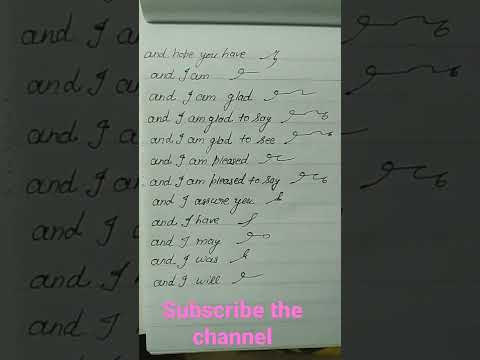 and hope you have
and I am
and I am glad
and I am glad to say
and I am glad to see
and I am pleased
and I am pleased to say
and I assure you
and I have
and I may
and I was
and I will
Subscribe the
channel